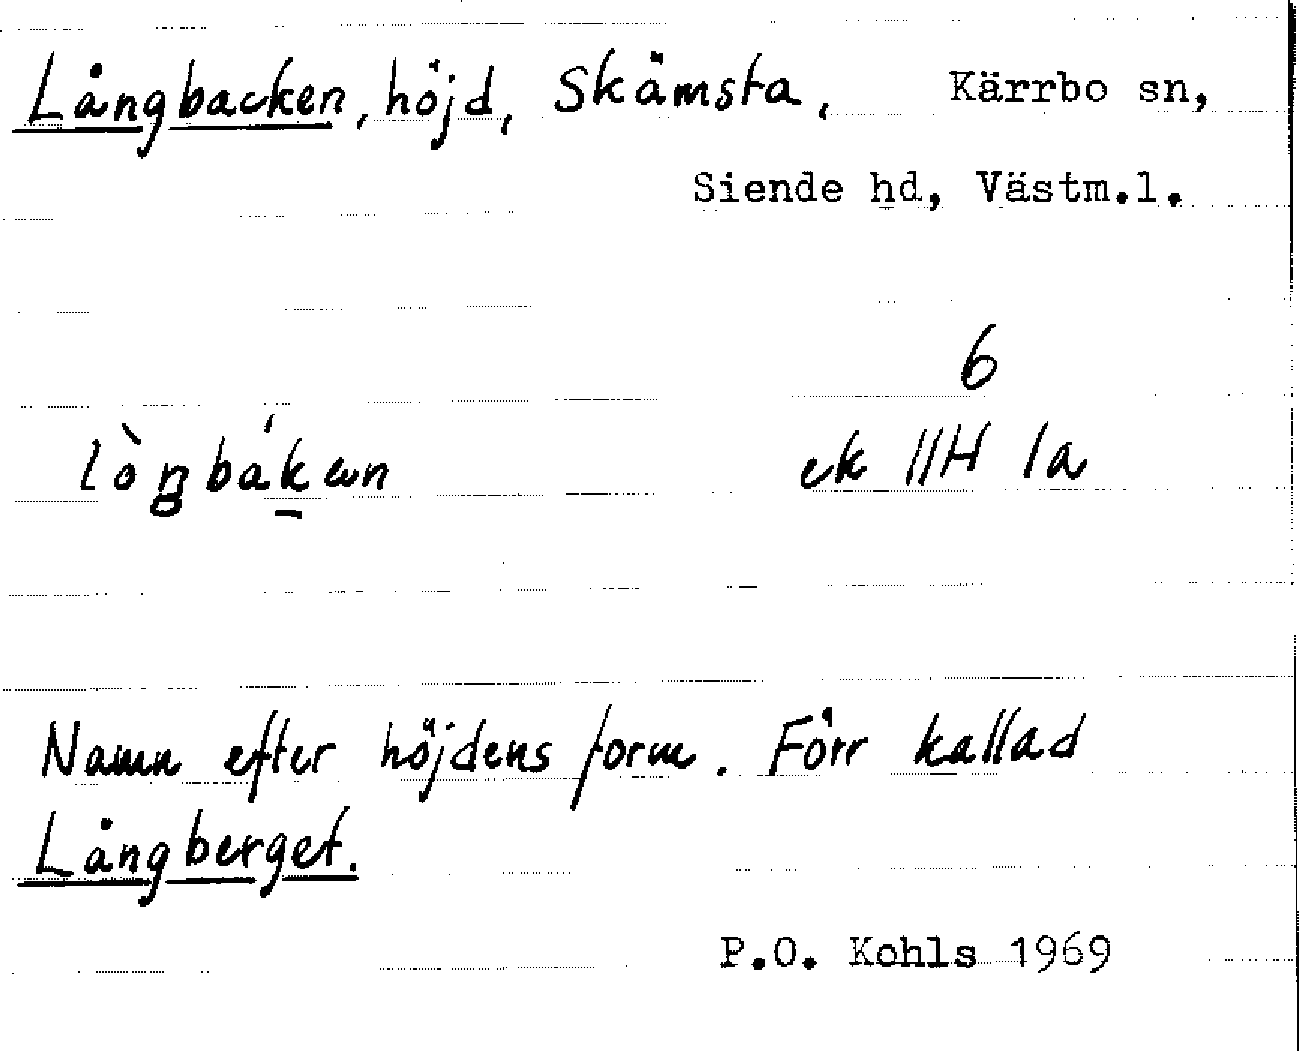 Långbacken, höjd, Skämsta, Kärrbo sn,
Siende hd, Västm.l.
6
lòŋbákæn ek 11H 1a
Namn efter höjdens form. Förr kallad
Långberget.
P.O. Kohls 1969